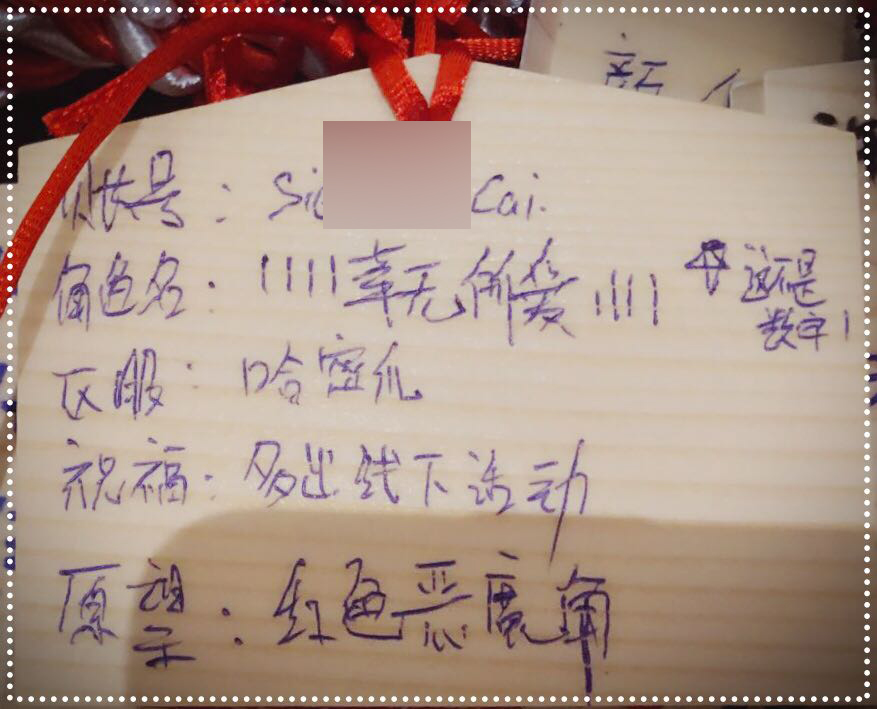 账号：Si Cai.
角色名：||||幸无所爱|||| ↑这不是数字1
区服：哈密瓜
祝福：多出线下活动
原望：红色恶魔角